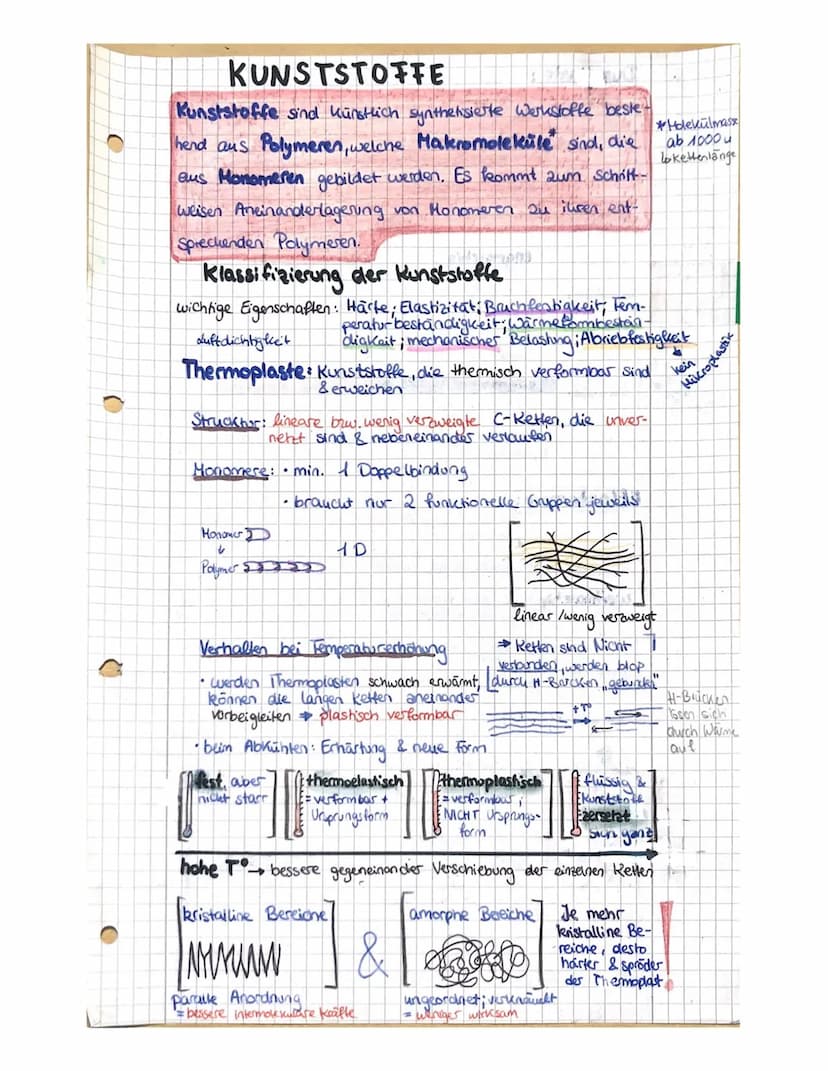 KUNSTSTOFFE
Kunststoffe sind künstlich synthetisierte Werkstoffe beste-
hend aus Polymeren, welche Makromoleküle* sind, die
aus Monomeren gebildet werden. Es kommt zum schritt-
weisen Aneinanderlagerung von Monomeren zu ihren ent-
sprechenden Polymeren.
*Molekülmasse
ab 1000 u
↳ Kettenlänge
Klassifizierung der Kunststoffe
wichtige Eigenschaften: Härte; Elastizität; Bruchfestigkeit; Tem-
peraturbeständigkeit; Wärmeformbestän-
digkeit; mechanischer Belastung; Abriebfestigkeit
Luftdichtigkeit
↳ kein
Mikroplastik
Thermoplaste: Kunststoffe, die thermisch verformbar sind
& erweichen
Struktur: lineare bzw. wenig verzweigte C-Ketten, die unver-
netzt sind & nebeneinander verlaufen
Monomere: • min. 1 Doppelbindung
• braucht nur 2 funktionelle Gruppen jeweils
Monomer
↓
Polymer
1D
linear / wenig verzweigt
⇒ Ketten sind Nicht
verbunden, werden bloß
durch H-Brücken "gebunden"
Verhalten bei Temperaturerhöhung
• werden Thermoplasten schwach erwärmt,
können die langen Ketten aneinander
vorbeigleiten ⇒ plastisch verformbar
• beim Abkühlen: Erhärtung & neue Form
+T°
H-Brücken
lösen sich
durch Wärme
auf
fest, aber
nicht starr
thermoelastisch
= verformbar +
Ursprungsform
thermoplastisch
= verformbar,
NICHT Ursprungs-
form
flüssig &
Kunststoffe
zersetzt
sich ganz
hohe T° → bessere gegeneinander Verschiebung der einzelnen Ketten
kristalline Bereiche
&
amorphe Bereiche
paralle Anordnung
= bessere intermolekulare Kräfte
ungeordnet; verknäuelt
= weniger wirksam
Je mehr
kristalline Be-
reiche, desto
härter & spröder
der Thermoplast !